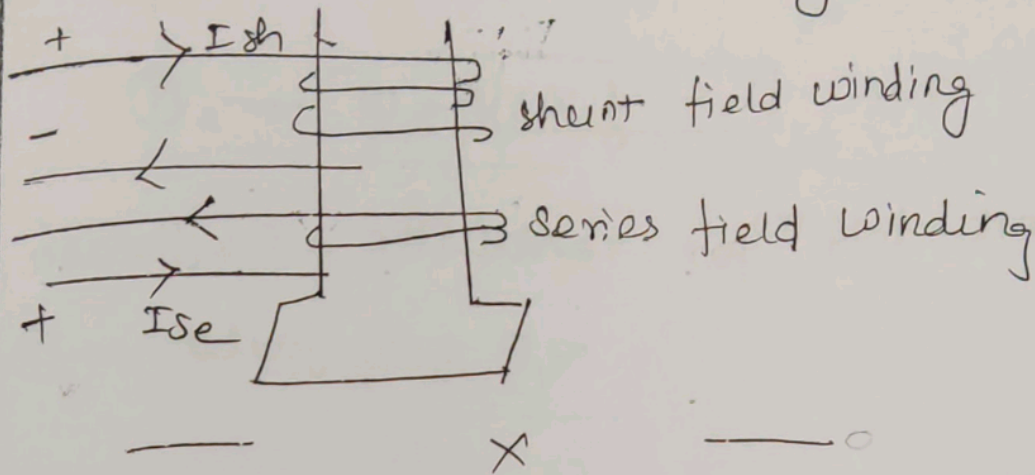 + Ish
shunt field winding
-
series field winding
+ Ise
X